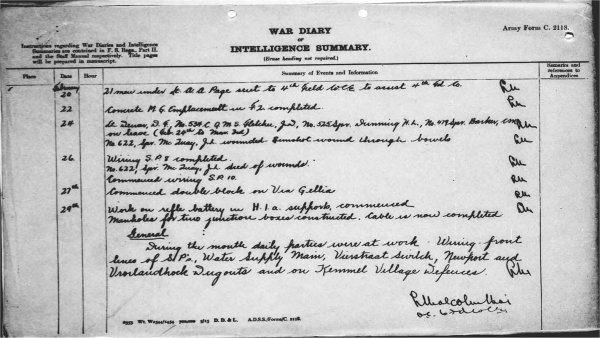 WAR DIARY
or
INTELLIGENCE SUMMARY.
(Erase heading not required.)
Army Form C. 2118.
Instructions regarding War Diaries and Intelligence
Summaries are contained in F. S. Regs., Part II.
and the Staff Manual respectively. Title pages
will be prepared in manuscript.
Place Date Hour Summary of Events and Information Remarks and references to Appendices
February
20 21 men under Lt. A A Page sent to 4th Field Co CE to assist 4th Fd Co.
22 Concrete M.G. Emplacement in F2 completed.
24 Lt Dewar, D. F, No. 534 C Q M S Fletcher, J.D, No. 525 Spr. Dunning H.L, No. 479 Spr. Barker,
on leave (Feb. 24th to Mar 3rd)
No. 622, Spr. McQuay, J.L wounded Gunshot wound through bowels
26 Wiring S.P. 8 completed.
No. 622, Spr. McQuay, J.L died of wounds.
Commenced wiring S.P. 10.
27th Commenced double block on Via Gellia
29th Work on rifle battery in H.1.a support, commenced
Manholes for two junction boxes constructed. Cable is now completed
General:
During the month daily parties were at work. Wiring front
lines of S.Ps, Water Supply Main, Vierstraat Switch, Newport and
Dugouts and on Kemmel Village Defences.
D. D. & L. A.D.S.S./Forms/C. 2118.